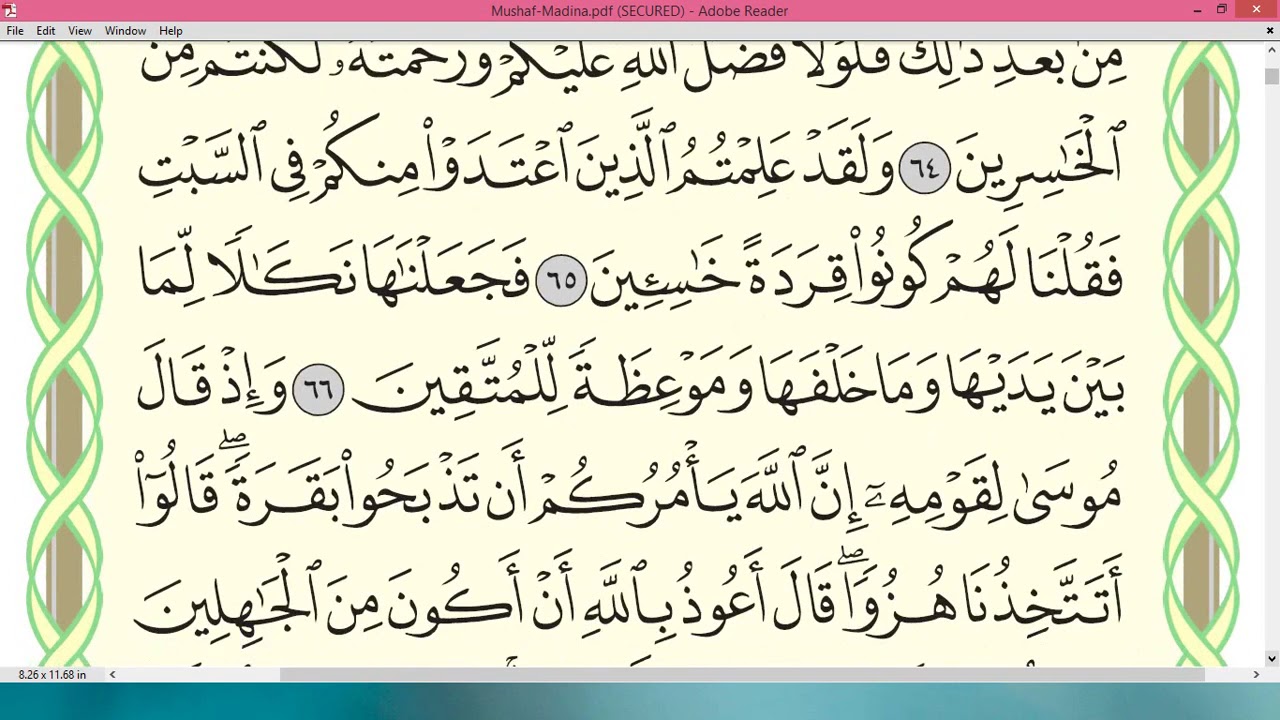 Mushaf-Madina.pdf (SECURED) - Adobe Reader
File Edit View Window Help
مِنۢ بَعْدِ ذَٰلِكَ فَلَوْلَا فَضْلُ ٱللَّهِ عَلَيْكُمْ وَرَحْمَتُهُۥ لَكُنتُم مِّنَ
ٱلْخَٰسِرِينَ ٦٤ وَلَقَدْ عَلِمْتُمُ ٱلَّذِينَ ٱعْتَدَوْا۟ مِنكُمْ فِى ٱلسَّبْتِ
فَقُلْنَا لَهُمْ كُونُوا۟ قِرَدَةً خَٰسِـِٔينَ ٦٥ فَجَعَلْنَٰهَا نَكَٰلًا لِّمَا
بَيْنَ يَدَيْهَا وَمَا خَلْفَهَا وَمَوْعِظَةً لِّلْمُتَّقِينَ ٦٦ وَإِذْ قَالَ
مُوسَىٰ لِقَوْمِهِۦٓ إِنَّ ٱللَّهَ يَأْمُرُكُمْ أَن تَذْبَحُوا۟ بَقَرَةً ۖ قَالُوٓا۟
أَتَتَّخِذُنَا هُزُوًا ۖ قَالَ أَعُوذُ بِٱللَّهِ أَنْ أَكُونَ مِنَ ٱلْجَٰهِلِينَ
8.26 x 11.68 in